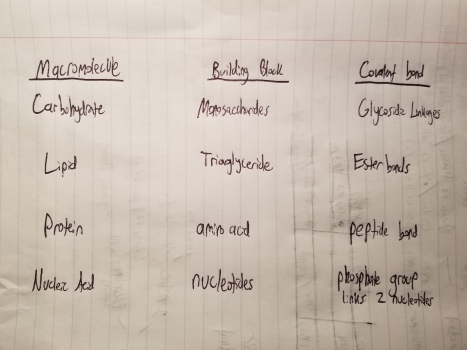 Macromolecule Building Block Covalent bond
Carbohydrate Monosaccharides Glycosidic Linkages
Lipid Triaglyceride Ester bonds
Protein amino acid peptide bond
Nucleic Acid nucleotides phosphate group
links 2 nucleotides